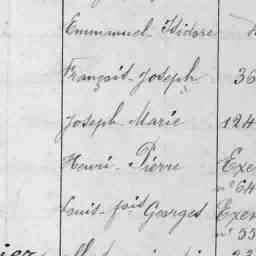 Emmanuel Isidore
François-Joseph 36
Joseph-Marie 124
Henri-Pierre Exe
n° 64
Louis-fois Georges Exe
n° 55